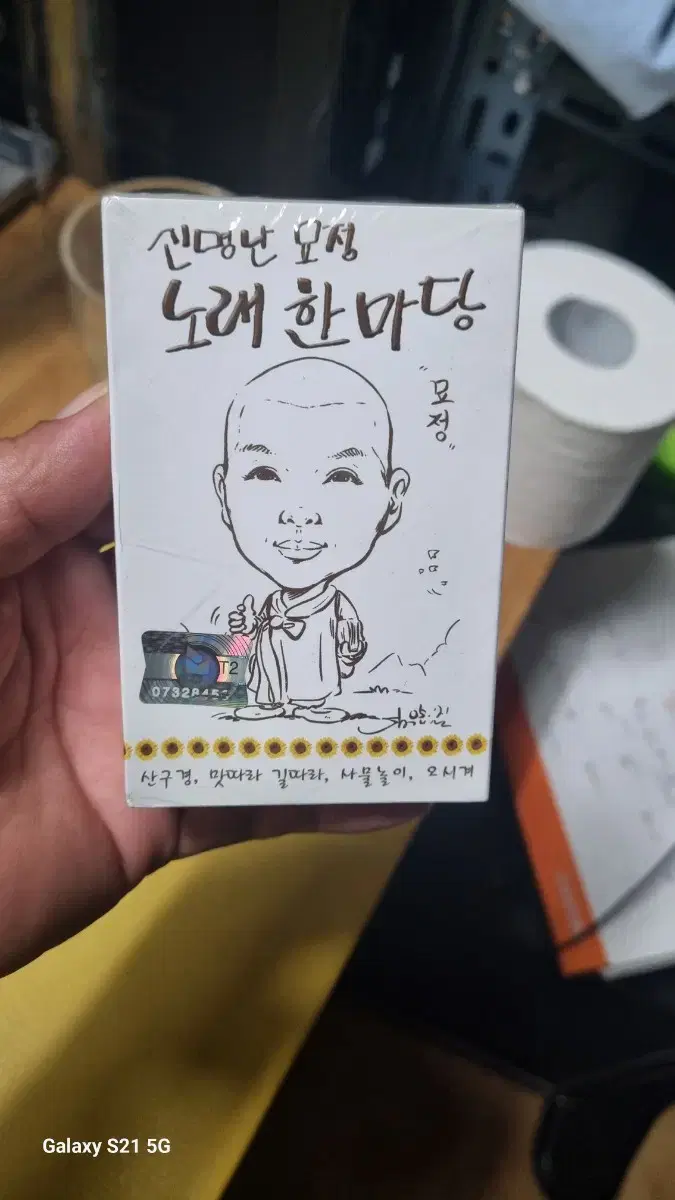 신명난 묘정
노래 한 마당
"묘정"
T2
산구경, 맛따라 길따라, 사물놀이, 오시게
Galaxy S21 5G